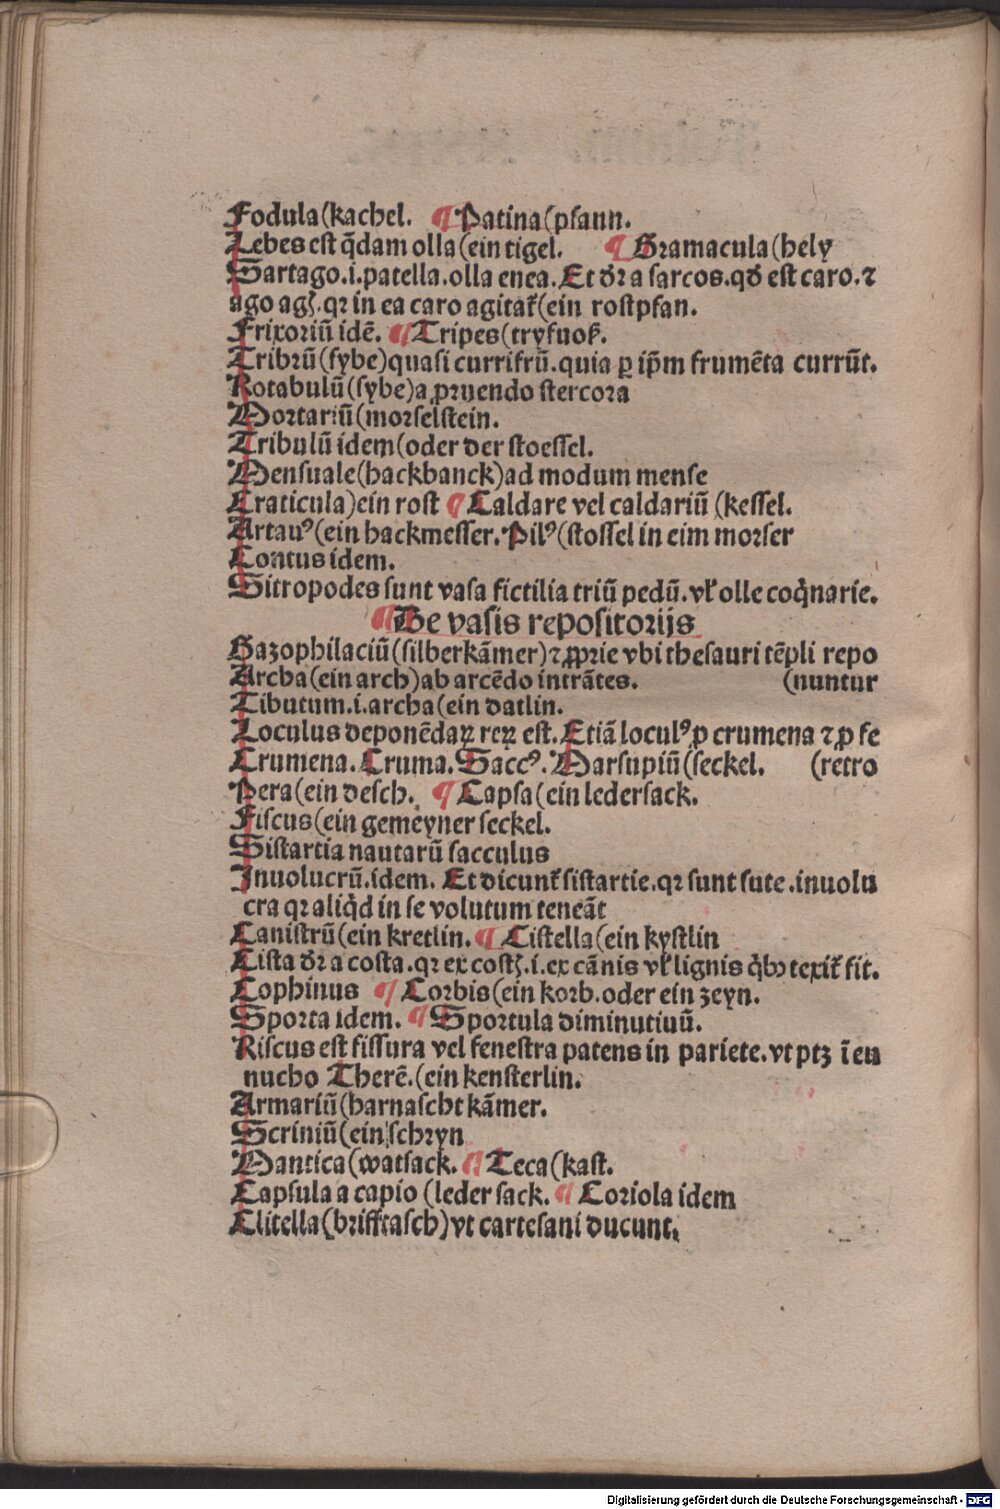 Fodula(kachel. ¶ Patina(pfann.
Lebes est q̄dam olla(ein tigel. ¶ Gramacula(hely
Sartago.i.patella.olla enea. Et dr̄ a sarcos.qd̄ est caro.⁊
ago agꝭ.qꝛ in ea caro agitat̄(ein rostpfan.
Frixoriū idē. ¶ Tripes(tryfuoß.
Tribrū(sybe)quasi currifrū.quia ꝑ ip̄m frumēta currūt.
Rotabulū(sybe)a ꝓruendo stercora
Mortariū(morselstein.
Tribulū idem(oder der stoessel.
Mensuale(hackbanck)ad modum mense
Craticula)ein rost ¶ Caldare vel caldariū (kessel.
Artauꝰ(ein hackmesser. Pilꝰ(stossel in eim morser
Contus idem.
Sitropodes sunt vasa fictilia triū pedū.vl̄ olle coq̄narie.
¶ De vasis repositorijs
Gazophilaciū(silberkāmer)⁊ ꝓprie vbi thesauri tēpli repo
Archa(ein arch)ab arcēdo intrātes. (nuntur
Tibutum.i.archa(ein datlin.
Loculus deponēdaꝝ reꝝ est. Etiā loculꝰ ꝓ crumena ⁊ ꝓ fe
Crumena. Cruma. Saccꝰ. Marsupiū(seckel. (retro
Pera(ein desch. ¶ Capsa(ein ledersack.
Fiscus(ein gemeyner seckel.
Sistartia nautarū sacculus
Inuolucrū.idem. Et dicunt̄ sistartie.qꝛ sunt sute.inuolu
cra qꝛ aliq̄d in se volutum teneāt
Canistrū(ein kretlin. ¶ Cistella(ein kystlin
Cista dr̄ a costa.qꝛ ex costꝭ.i.ex cānis vl̄ lignis q̄bꝰ texit̄ fit.
Cophinus ¶ Corbis(ein korb.oder ein zeyn.
Sporta idem. ¶ Sportula diminutiuū.
Riscus est fissura vel fenestra patens in pariete.vt ptꝫ ī eu
nucho Therē.(ein kensterlin.
Armariū(harnascht kāmer.
Scriniū(ein schryn
Mantica(watsack. ¶ Teca(kast.
Capsula a capio (leder sack. ¶ Coriola idem
Clitella(brifftasch)vt cartesani ducunt.
Digitalisierung gefördert durch die Deutsche Forschungsgemeinschaft - DFG